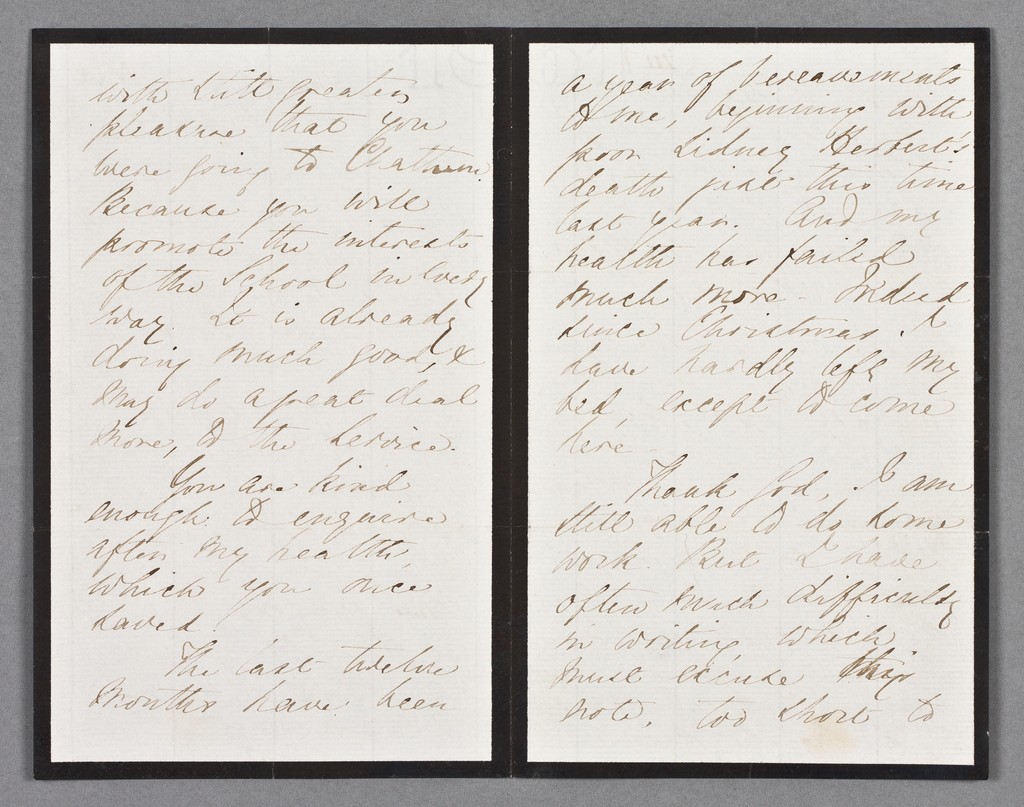 with still greater
pleasure that you
were going to Chatham
Because you will
promote the interests
of the School in every
way. It is already
doing much good, &
may do a great deal
more, to the Service.
You are kind
enough to enquire
after my health,
which you once
saved.
The last twelve
months have been
a year of bereavements
to me, beginning with
poor Sidney Herbert's
death just this time
last year. And my
health has failed
much more - Indeed
since Christmas, I
have hardly left my
bed, except to come
here
Thank God, I am
still able to do some
work. But I have
often much difficulty
in writing, which
must excuse this
note, too short to